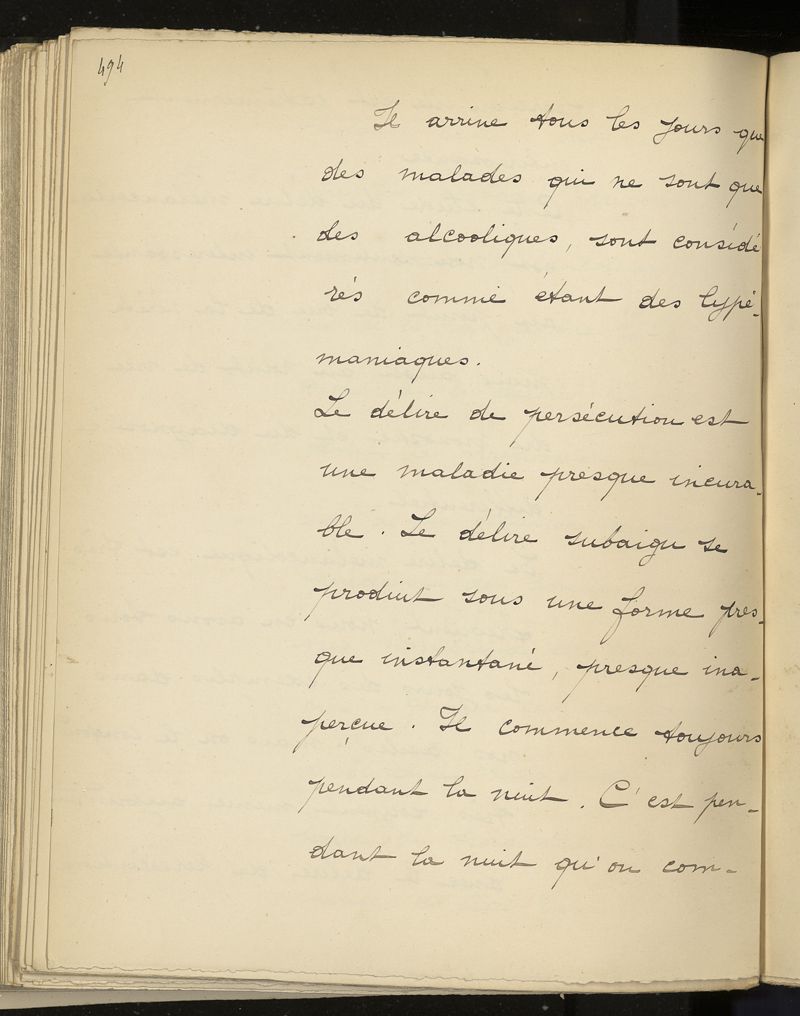 494
Il arrive tous les jours que
des malades qui ne sont que
des alcooliques, sont considé
rés comme étant des lypé-
maniaques.
Le délire de persécution est
une maladie presque incura-
ble. Le délire subaigu se
produit sous une forme pres-
que instantané, presque ina-
perçue. Il commence toujours
pendant la nuit. C'est pen-
dant la nuit qu'on com-